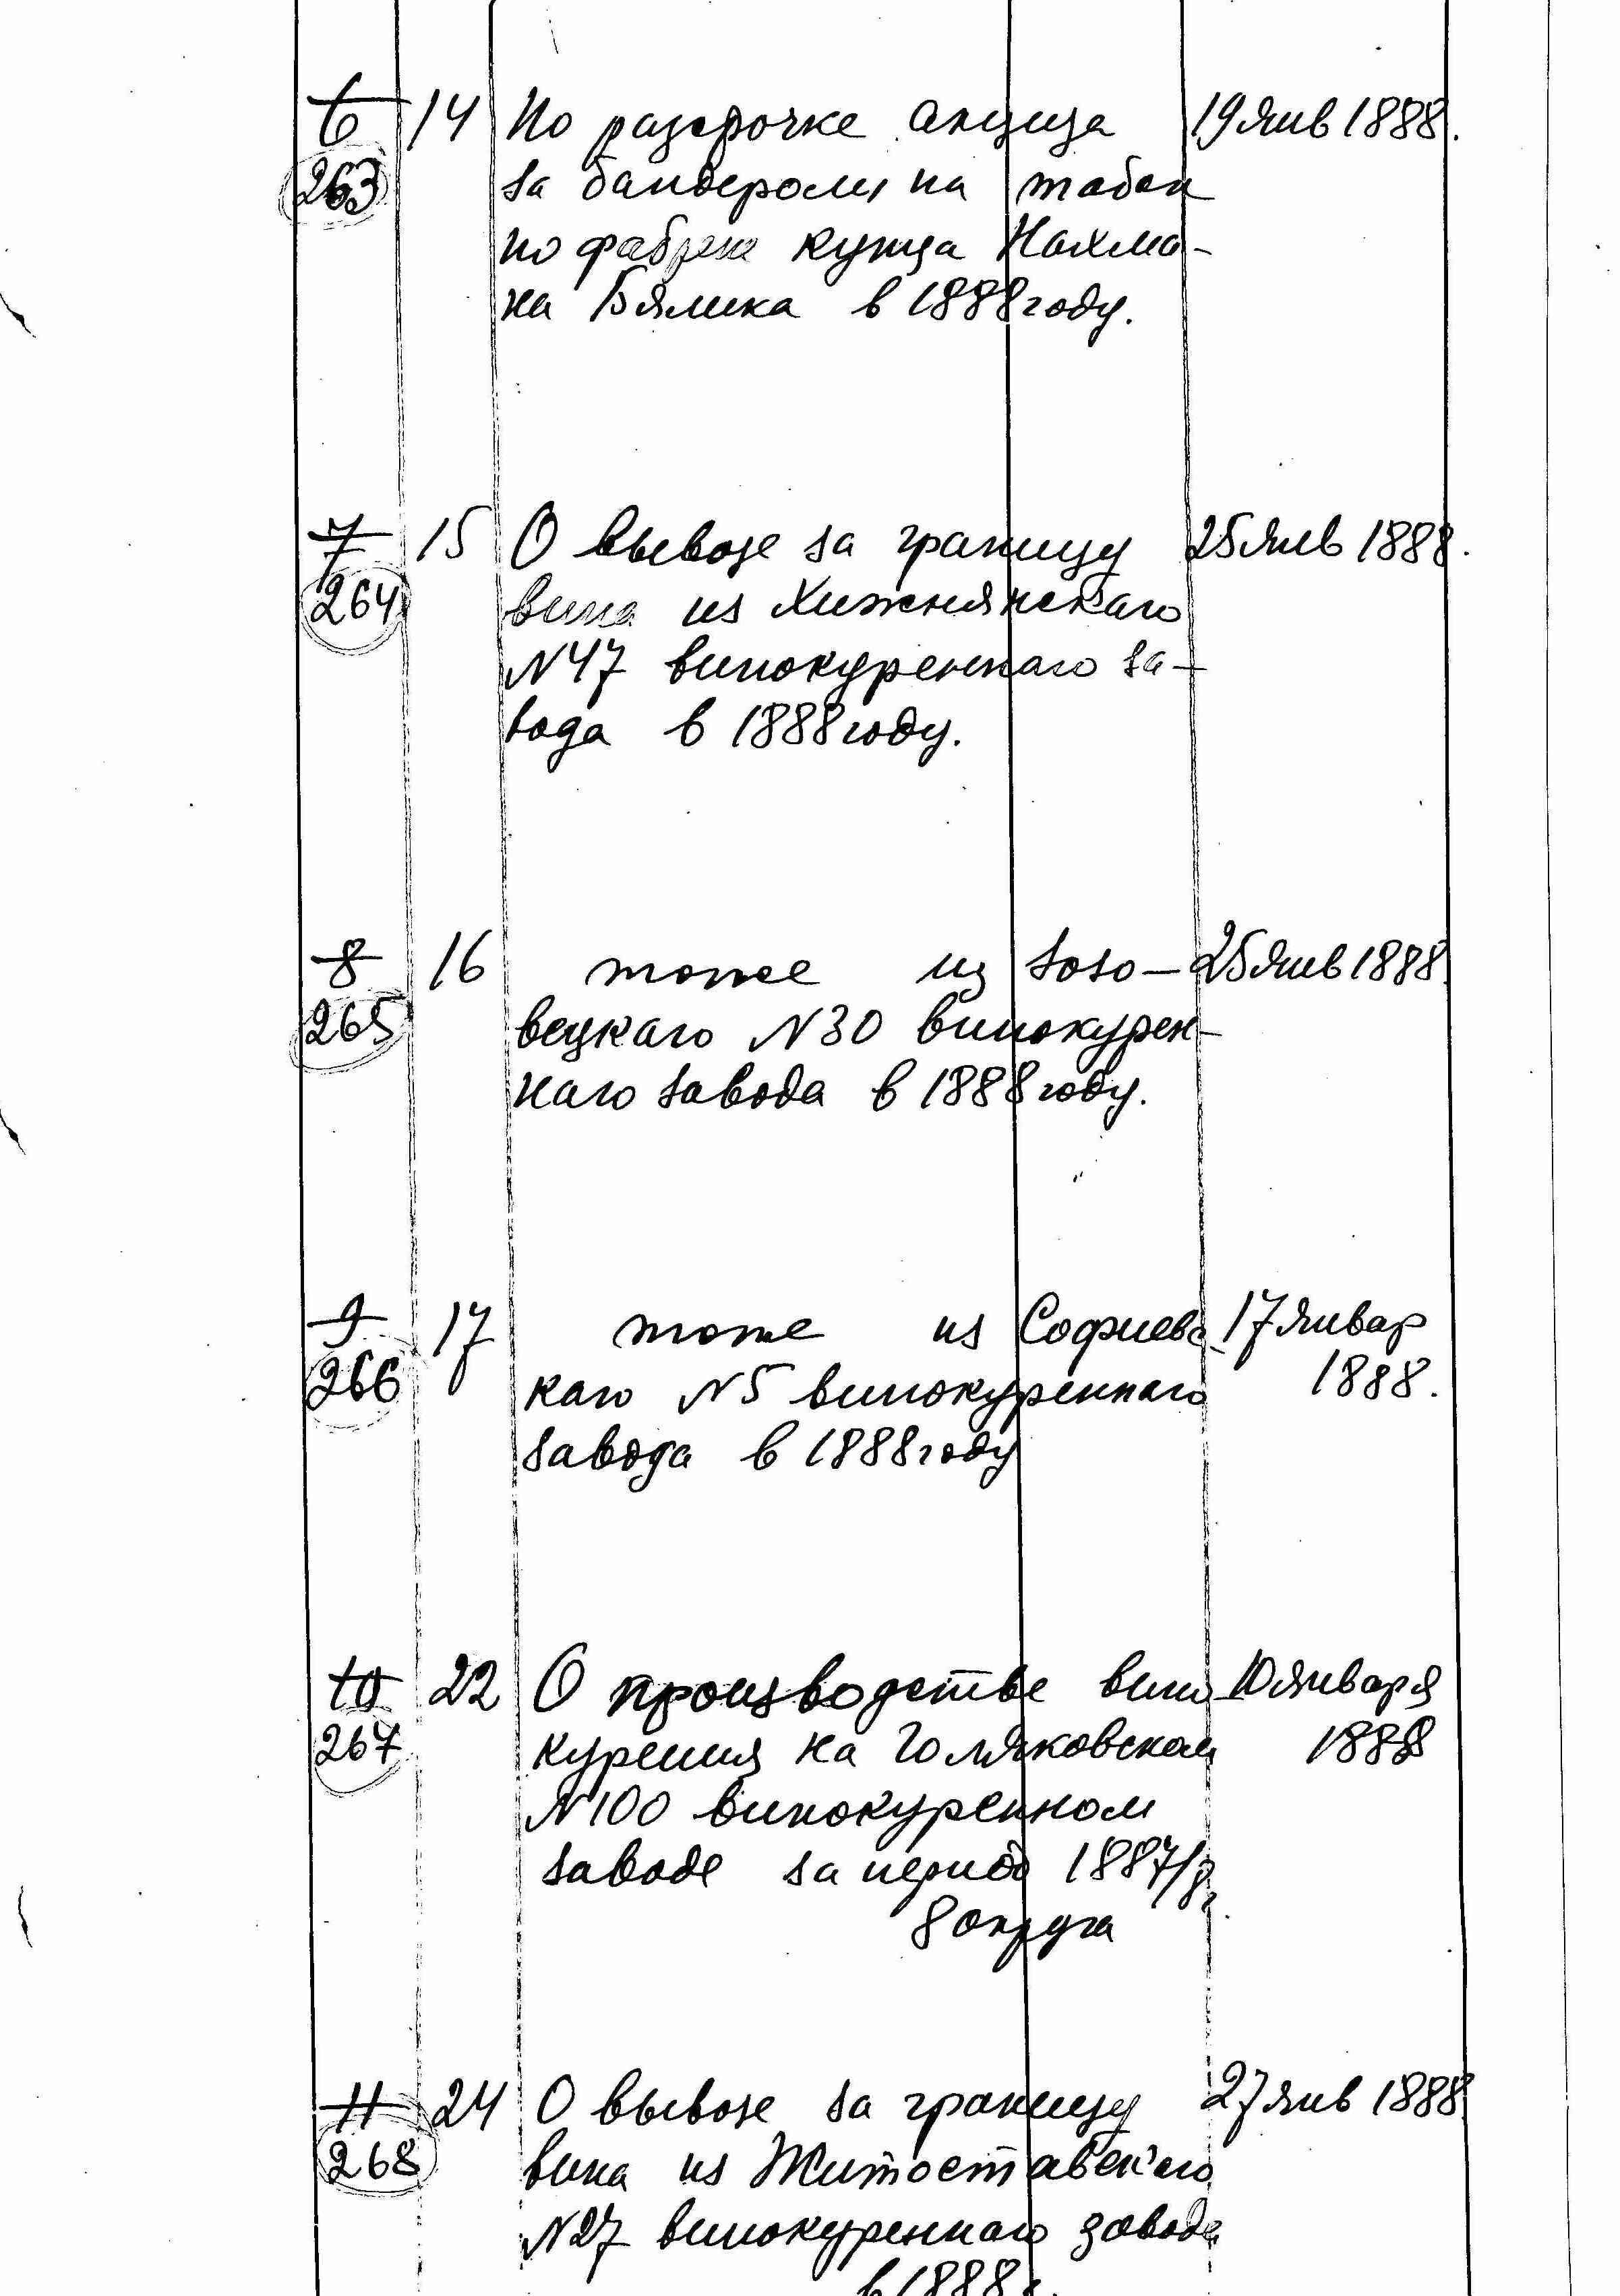 6 14 По разсрочке акциза 19 янв 1888.
263 за бандероли на табак
по фабрик купца Нахма-
на Бялика в 1888 году.
7 15 О вывозе за границу 25 янв 1888.
264 вина из Хижнянскаго
N 47 винокуреннаго за-
вода в 1888 году.
8 16 тоже из Зозо- 25 янв 1888
265 вецкаго N 30 винокурен-
наго завода в 1888 году.
9 17 тоже из Софиевс- 17 январ
266 каго N 5 винокуреннаго 1888.
завода в 1888 году
10 22 О производстве вино- 10 января
267 курения на Голяковском 1888
N 100 винокуренном
заводе за период 1887/8 г.
8 округа
11 24 О вывозе за границу 27 янв 1888
268 вина из Житоставскаго
N 27 винокуреннаго завода
в 1888 г.